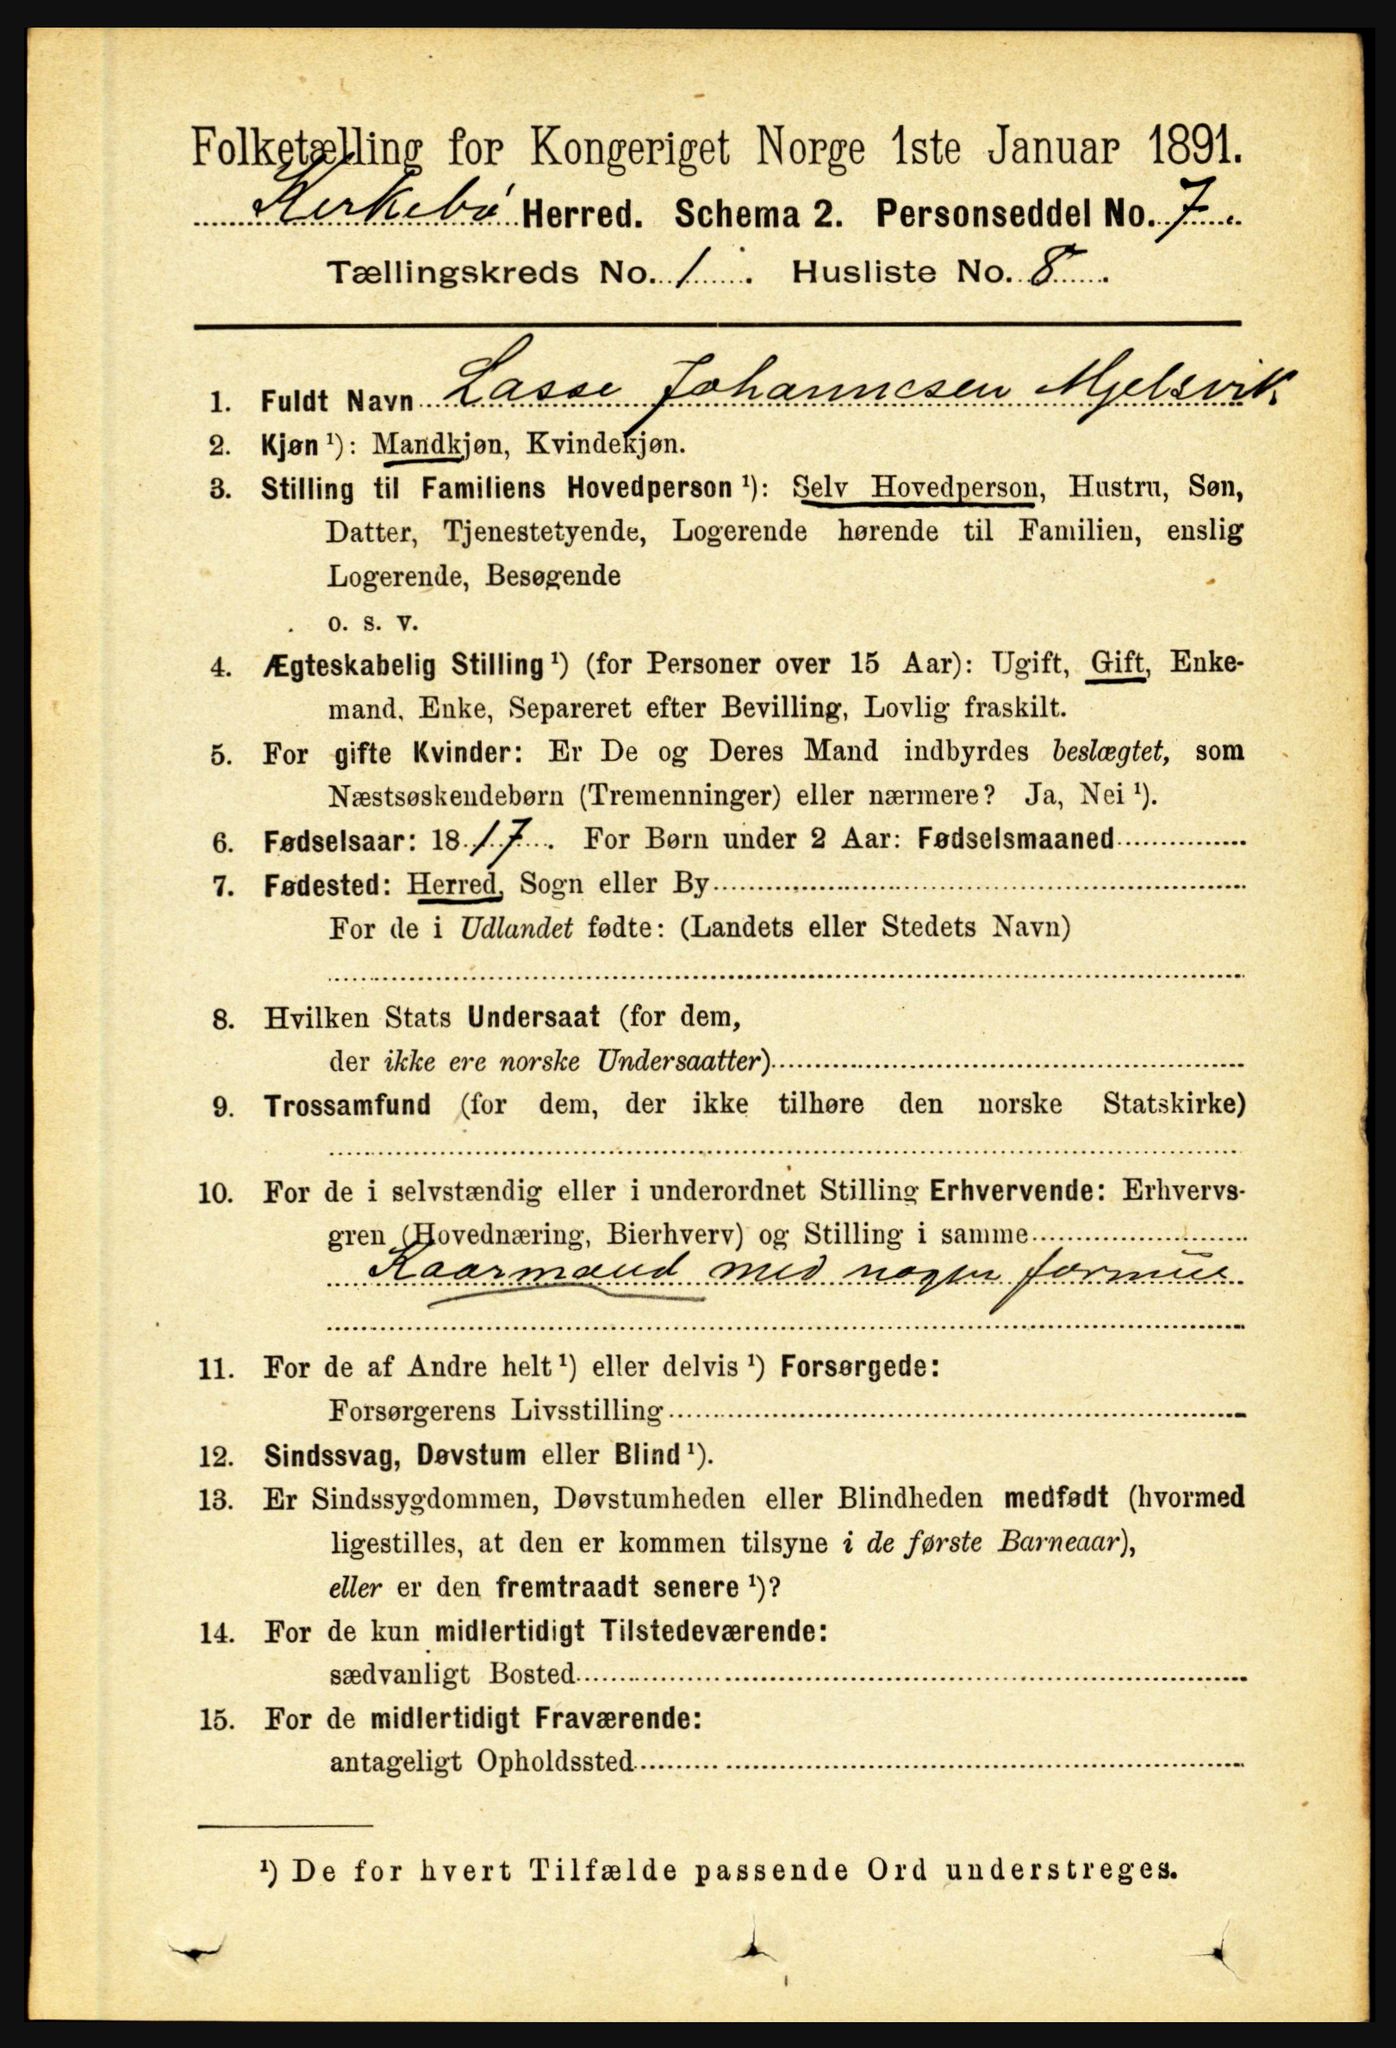 Folketælling for Kongeriget Norge 1ste Januar 1891.
Kirkebø Herred. Schema 2. Personseddel No. 7.
Tællingskreds No. 1. Husliste No. 8.
1. Fuldt Navn Lasse Johannesen Mjelsvik
2. Kjøn ¹): Mandkjøn, Kvindekjøn.
3. Stilling til Familiens Hovedperson ¹): Selv Hovedperson, Hustru, Søn,
Datter, Tjenestetyende, Logerende hørende til Familien, enslig
Logerende, Besøgende
o. s. v.
4. Ægteskabelig Stilling ¹) (for Personer over 15 Aar): Ugift, Gift, Enke-
mand, Enke, Separeret efter Bevilling, Lovlig fraskilt.
5. For gifte Kvinder: Er De og Deres Mand indbyrdes beslægtet, som
Næstsøskendebørn (Tremenninger) eller nærmere? Ja, Nei ¹).
6. Fødselsaar: 1817. For Børn under 2 Aar: Fødselsmaaned
7. Fødested: Herred, Sogn eller By
For de i Udlandet fødte: (Landets eller Stedets Navn)
8. Hvilken Stats Undersaat (for dem,
der ikke ere norske Undersaatter)
9. Trossamfund (for dem, der ikke tilhøre den norske Statskirke)
10. For de i selvstændig eller i underordnet Stilling Erhvervende: Erhvervs-
gren (Hovednæring, Bierhverv) og Stilling i samme
Kaarmand med nogen formue
11. For de af Andre helt ¹) eller delvis ¹) Forsørgede:
Forsørgerens Livsstilling
12. Sindssvag, Døvstum eller Blind ¹).
13. Er Sindssygdommen, Døvstumheden eller Blindheden medfødt (hvormed
ligestilles, at den er kommen tilsyne i de første Barneaar),
eller er den fremtraadt senere ¹)?
14. For de kun midlertidigt Tilstedeværende:
sædvanligt Bosted
15. For de midlertidigt Fraværende:
antageligt Opholdssted
¹) De for hvert Tilfælde passende Ord understreges.